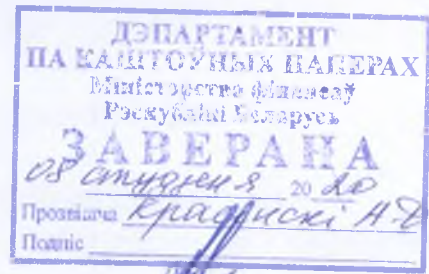 ДЭПАРТАМЕНТ
ПА КАШТОЎНЫХ ПАПЕРАХ
Міністэрства фінансаў
Рэспублікі Беларусь
ЗАВЕРАНА
08 студзеня 20 20
Прозвішча
Подпіс